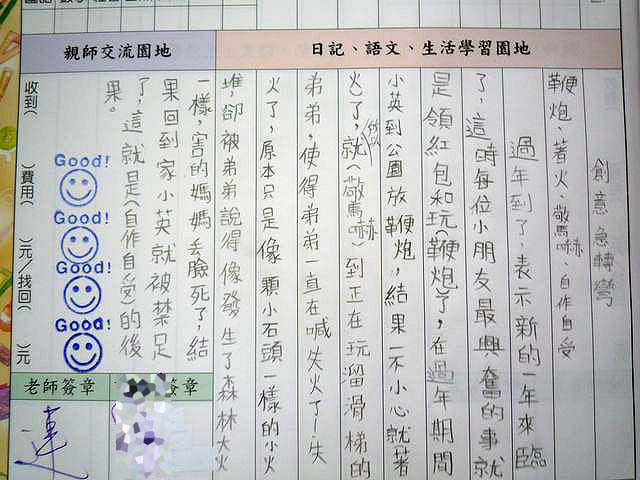 親師交流園地
日記、語文、生活學習園地
創意急轉彎
鞭炮、著火、驚嚇、自作自受
過年到了，表示新的一年來臨
了，這時每位小朋友最興奮的事就
是領紅包和玩(鞭炮)了，在過年期間
小英到公園放鞭炮，結果一不小心就著
火了，就(驚嚇)到正在玩溜滑梯的
弟弟，使得弟弟一直在喊失火了！失
火了，原本只是像一顆小石頭一樣的小火
堆，卻被弟弟說得像發生了森林大火
一樣，害的媽媽丟臉死了，結
果回到家小英就被禁足
了，這就是(自作自受)的後
果。
Good!
Good!
Good!
Good!
收到( )費用( )元/找回( )元
老師簽章
簽章
蓮